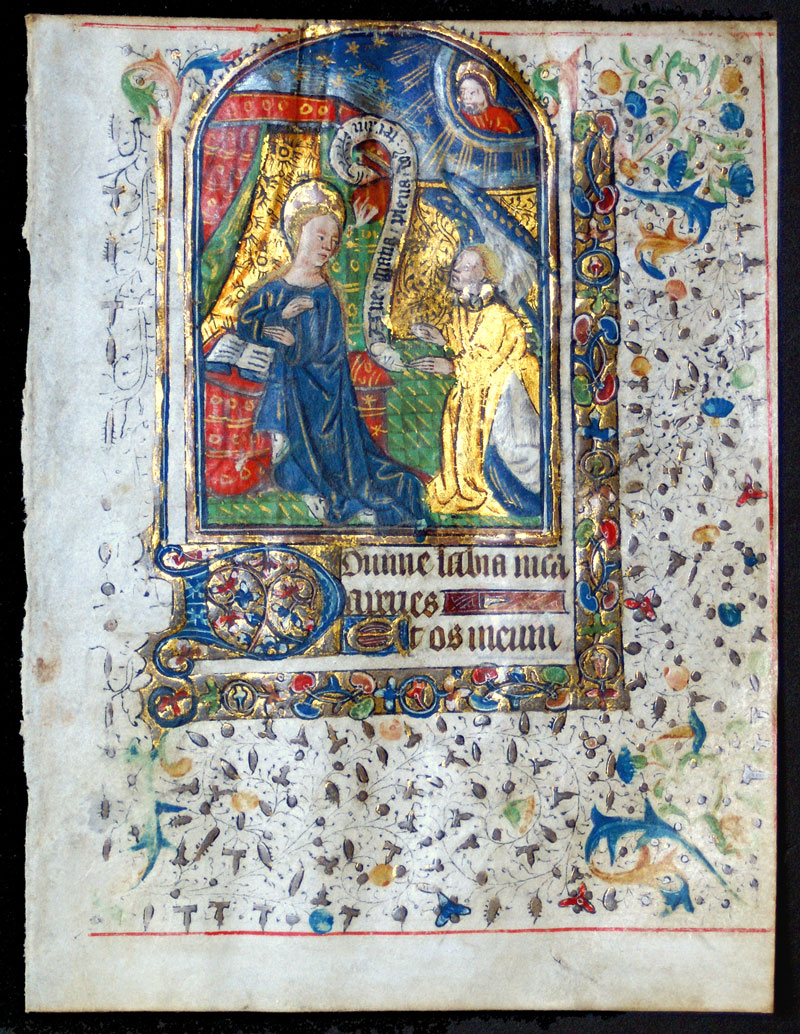 Aue maria · plena
Domine labia mea
aperies
Et os meum